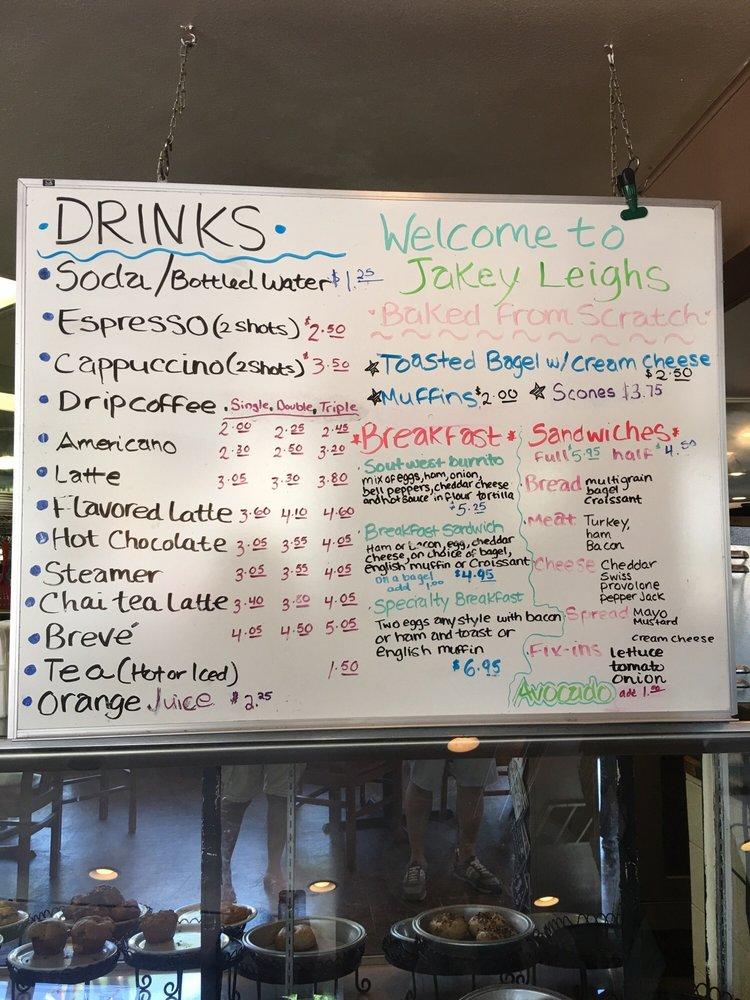 DRINKS
Soda/Bottled Water $1.25
Espresso (2 shots) $2.50
Cappuccino (2 shots) $3.50
Drip coffee Single, Double, Triple
2.00 2.25 2.45
Americano 2.30 2.50 3.20
Latte 3.05 3.30 3.80
Flavored Latte 3.60 4.10 4.60
Hot Chocolate 3.05 3.55 4.05
Steamer 3.05 3.55 4.05
Chai tea Latte 3.40 4.05
Brevé 4.05 4.50 5.05
Tea (Hot or Iced) 1.50
Orange Juice $2.25
Welcome to
Jakey Leighs
Baked from Scratch
Toasted Bagel w/ Cream cheese
$2.50
Muffins $2.00 Scones $3.75
Breakfast
Soutwest burrito
mix of eggs, ham, onion,
bell peppers, cheddar cheese
and hot sauce in flour tortilla
$5.25
Breakfast Sandwich
Ham or bacon, egg, cheddar
cheese, on choice of bagel,
english muffin or Croissant
on a bagel
add 1.00 $4.95
Specialty Breakfast
Two eggs any style with bacon
or ham and toast or
english muffin
$6.95
Sandwiches
full $5.95 half $4.50
Bread multigrain
bagel
croissant
Meat Turkey,
ham
Bacon
Cheese Cheddar
Swiss
provolone
pepper jack
Spread Mayo
Mustard
cream cheese
Fix-ins lettuce
tomato
onion
Avocado add 1.00